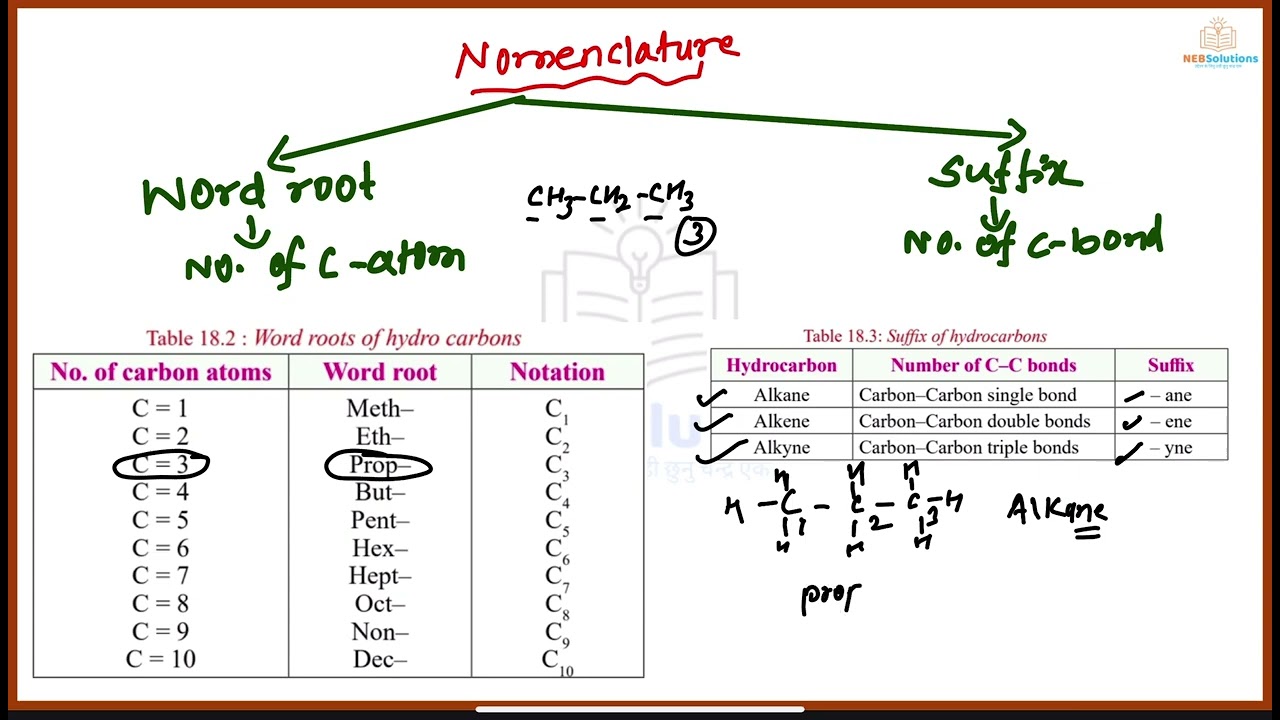 Nomenclature
NEBSolutions
Word root
No. of C-atom
CH3-CH2-CH3
3
Suffix
No. of C-bond
Table 18.2 : Word roots of hydro carbons
No. of carbon atoms Word root Notation
C = 1 Meth– C1
C = 2 Eth– C2
C = 3 Prop– C3
C = 4 But– C4
C = 5 Pent– C5
C = 6 Hex– C6
C = 7 Hept– C7
C = 8 Oct– C8
C = 9 Non– C9
C = 10 Dec– C10
Table 18.3: Suffix of hydrocarbons
Hydrocarbon Number of C–C bonds Suffix
Alkane Carbon–Carbon single bond – ane
Alkene Carbon–Carbon double bonds – ene
Alkyne Carbon–Carbon triple bonds – yne
H H H
H – C – C – C – H
1 2 3
H H H
Alkane
prop